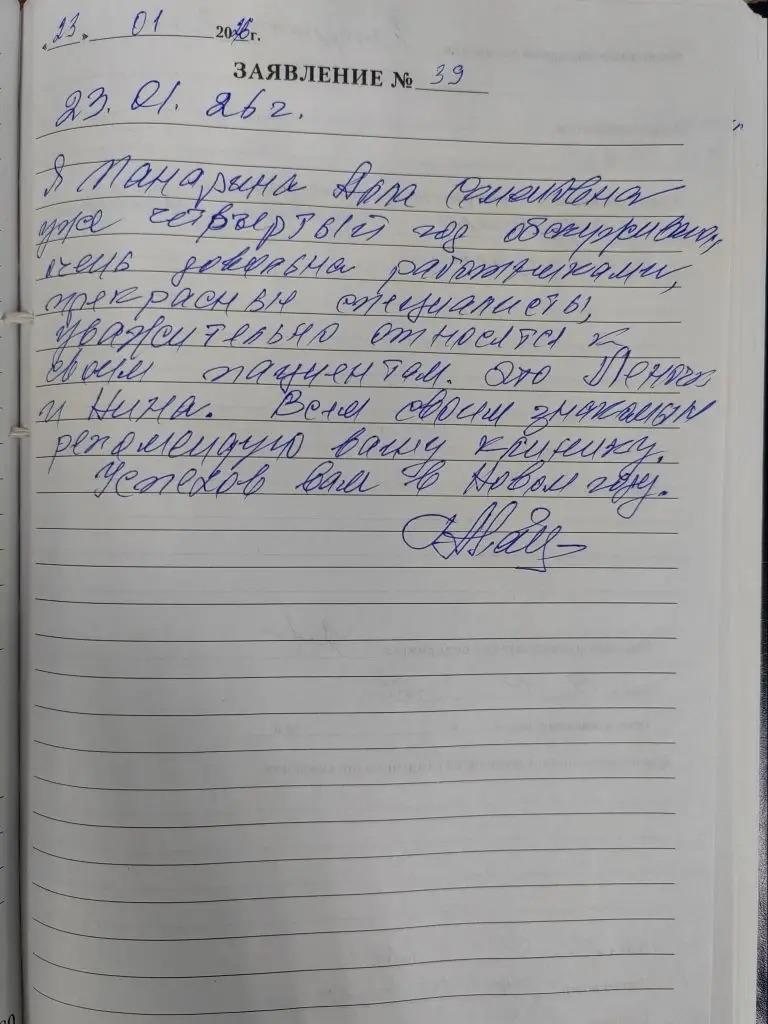 «23» 01 2026 г.
ЗАЯВЛЕНИЕ № 39
23. 01. 26 г.
Я Панарина Алла
уже четвёртый год обслуживаюсь,
очень довольна работниками,
прекрасные специалисты,
уважительно относятся к
своим пациентам. Это
и Нина. Всем своим знакомым
рекомендую вашу клинику.
Успехов вам в Новом году.